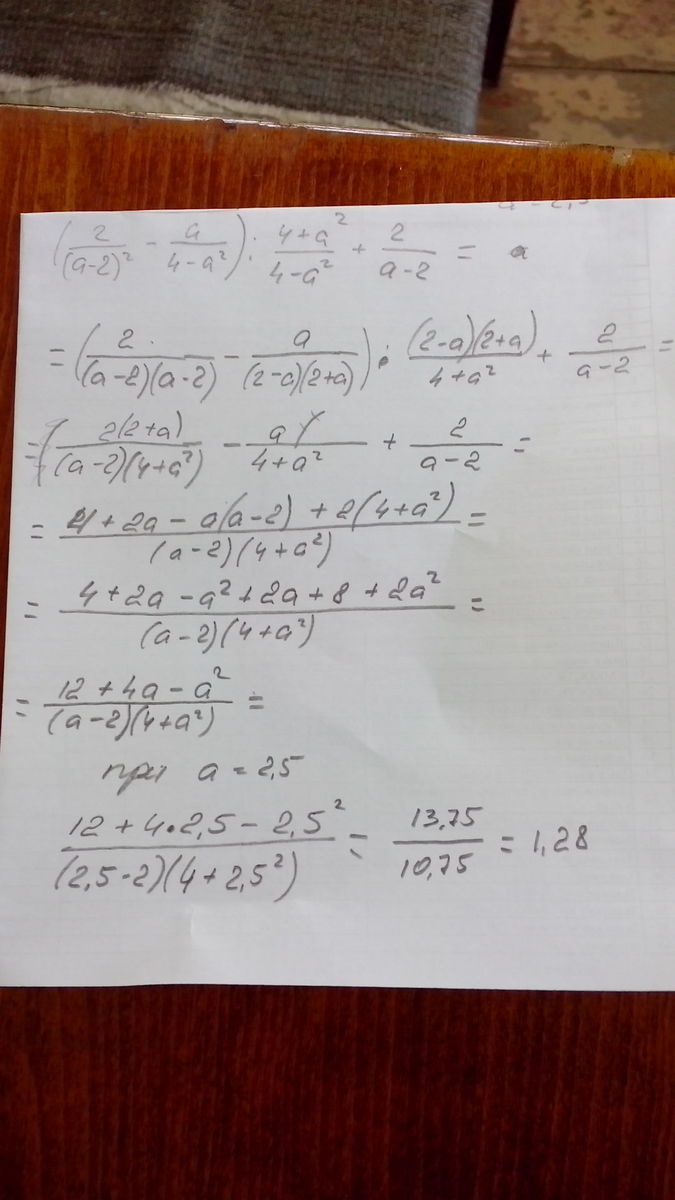 (2/(a-2)² - a/(4-a²)) : (4+a²)/(4-a²) + 2/(a-2) = a
= (2/((a-2)(a-2)) - a/((2-a)(2+a))) · ((2-a)(2+a))/(4+a²) + 2/(a-2) =
= 2(2+a)/((a-2)(4+a²)) - a/(4+a²) + 2/(a-2) =
= (4+2a-a(a-2)+2(4+a²))/((a-2)(4+a²)) =
= (4+2a-a²+2a+8+2a²)/((a-2)(4+a²)) =
= (12+4a-a²)/((a-2)(4+a²)) =
при a = 2,5
(12+4·2,5-2,5²)/((2,5-2)(4+2,5²)) = 13,75/10,75 = 1,28